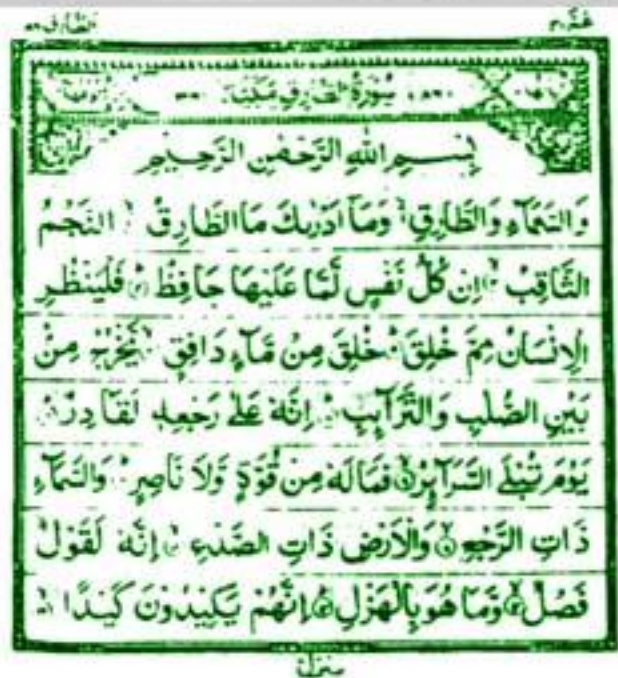 عَمَّ ٣٠ الطَّارِق ٨٦
سُوْرَةُ الطَّارِقِ مَكِّيَّةٌ
بِسْمِ اللهِ الرَّحْمٰنِ الرَّحِيْمِ
وَالسَّمَآءِ وَالطَّارِقِ ۙ وَمَآ اَدْرٰىكَ مَا الطَّارِقُ ۙ النَّجْمُ
الثَّاقِبُ ۙ اِنْ كُلُّ نَفْسٍ لَّمَّا عَلَيْهَا حَافِظٌ ؕ فَلْيَنْظُرِ
الْاِنْسَانُ مِمَّ خُلِقَ ؕ خُلِقَ مِنْ مَّآءٍ دَافِقٍ ۙ يَّخْرُجُ مِنْۢ
بَيْنِ الصُّلْبِ وَالتَّرَآئِبِ ؕ اِنَّهٗ عَلٰى رَجْعِهٖ لَقَادِرٌ ؕ
يَوْمَ تُبْلَى السَّرَآئِرُ ۙ فَمَا لَهٗ مِنْ قُوَّةٍ وَّلَا نَاصِرٍ ؕ وَالسَّمَآءِ
ذَاتِ الرَّجْعِ ۙ وَالْاَرْضِ ذَاتِ الصَّدْعِ ۙ اِنَّهٗ لَقَوْلٌ
فَصْلٌ ۙ وَّمَا هُوَ بِالْهَزْلِ ؕ اِنَّهُمْ يَكِيْدُوْنَ كَيْدًا ۙ
منزل